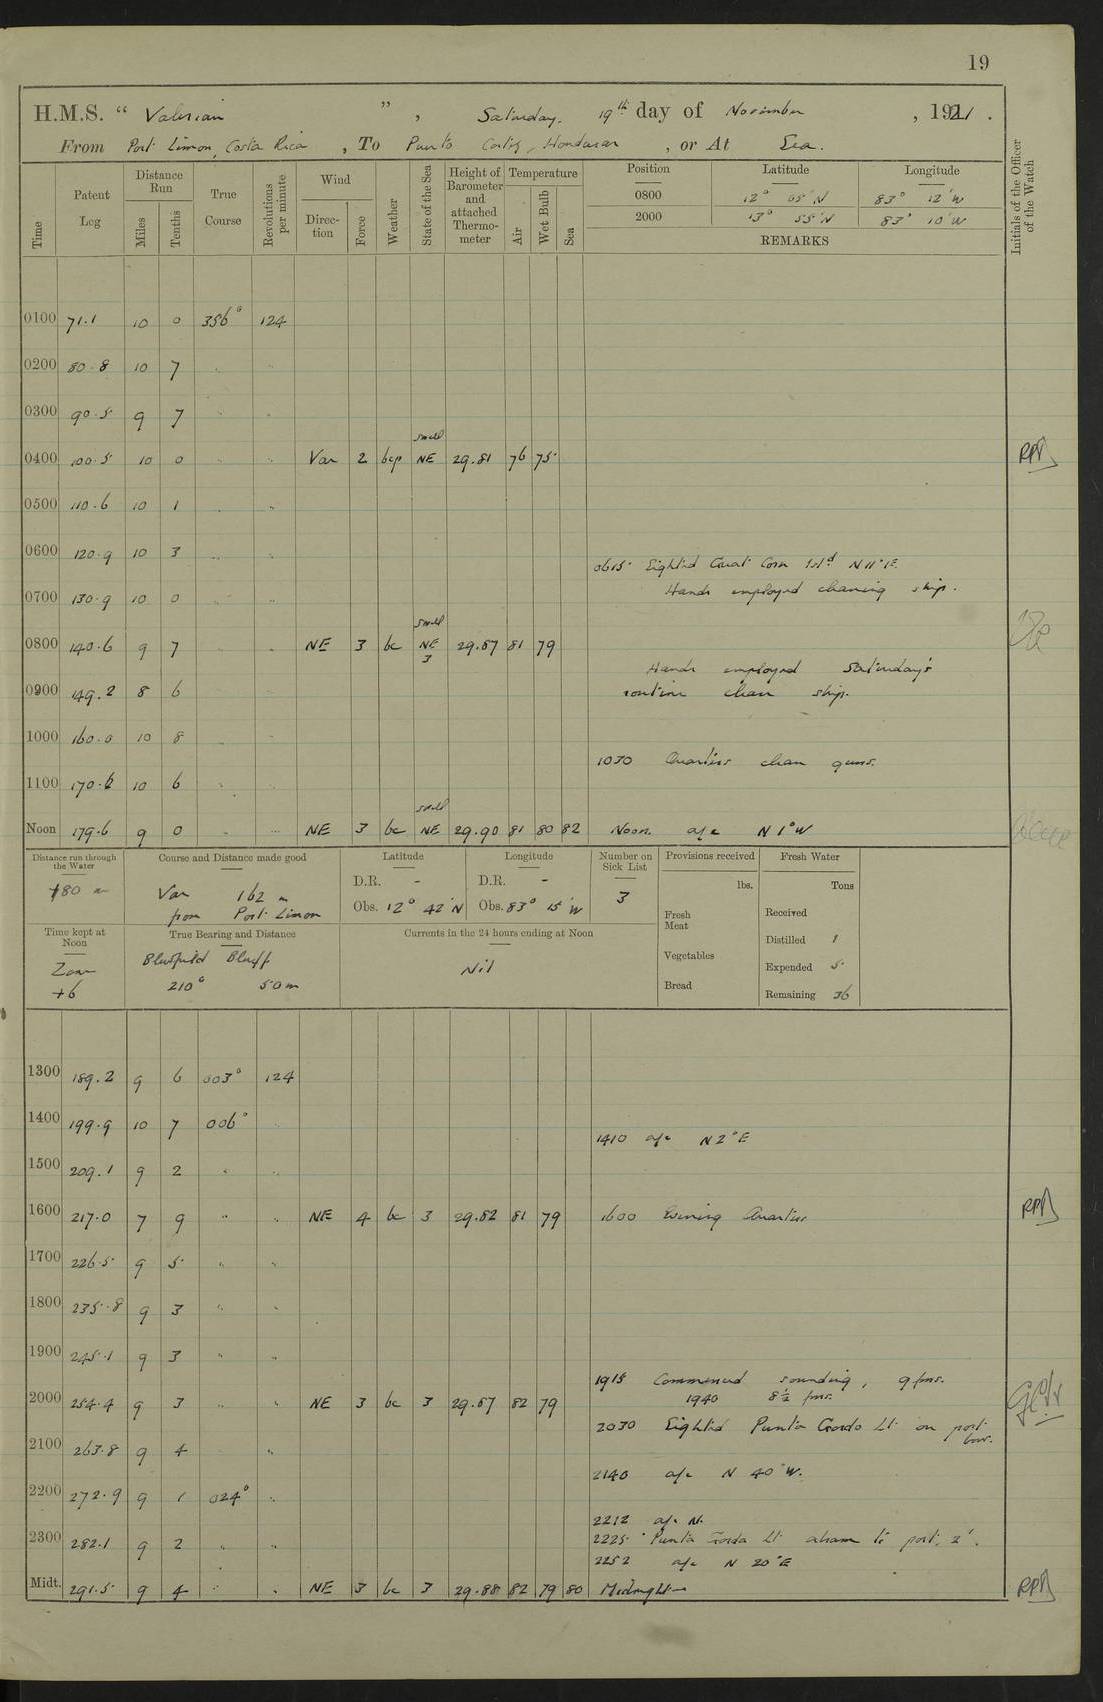 19
H.M.S. “ Valerian ” , Saturday. 19th day of November , 1921 .
From Port Limon, Costa Rica , To Puerto Cortez, Honduras , or At Sea.
Time Patent Log Distance Run Miles Tenths True Course Revolutions per minute Wind Direction Force Weather State of the Sea Height of Barometer and attached Thermometer Temperature Air Wet Bulb Sea Position Latitude Longitude Initials of the Officer of the Watch
0800 12° 05' N 83° 12' W
2000 13° 55' N 83° 10' W
REMARKS
0100 71.1 10 0 356° 124
0200 80.8 10 7 " "
0300 90.5 9 7 " "
0400 100.5 10 0 " " Var 2 bcp swell NE 29.81 76 75 RPB
0500 110.6 10 1 " "
0600 120.9 10 3 " "
0615 Sighted Great Corn Isld N11°E.
0700 130.9 10 0 " " Hands employed cleaning ship.
0800 140.6 9 7 " " NE 3 bc swell NE 3 29.87 81 79
Hands employed Saturday's
0900 149.2 8 6 routine clean ship.
1000 160.0 10 8 " "
1030 Quarters clean guns.
1100 170.6 10 6 " "
Noon 179.6 9 0 " " NE 3 bc swell NE 29.90 81 80 82 Noon. a/c N 1° W
Distance run through the Water Course and Distance made good Latitude Longitude Number on Sick List Provisions received Fresh Water
180 m Var 162 m from Port Limon D.R. - D.R. - 3 lbs. Tons
Obs. 12° 42' N Obs. 83° 15' W Fresh Meat Received
Time kept at Noon True Bearing and Distance Currents in the 24 hours ending at Noon Distilled 1
Zone +6 Bluefield Bluff 210° 50 m Nil Vegetables Expended 5
Bread Remaining 36
1300 189.2 9 6 003° 124
1400 199.9 10 7 006° "
1410 a/c N 2° E
1500 209.1 9 2 " "
1600 217.0 7 9 " " NE 4 bc 3 29.82 81 79 1600 Evening Quarters RPB
1700 226.5 9 5 " "
1800 235.8 9 3 " "
1900 245.1 9 3 " "
1915 Commenced sounding, 9 fms.
2000 254.4 9 3 " " NE 3 bc 3 29.87 82 79 1940 8½ fms.
2030 Sighted Punta Gorda Lt. on port bow.
2100 263.8 9 4 "
2140 a/c N 40° W.
2200 272.9 9 1 024° "
2212 a/c N.
2300 282.1 9 2 " " 2225 Punta Gorda Lt abeam to port, 2'.
2252 a/c N 20° E
Midt. 291.5 9 4 " " NE 3 bc 3 29.88 82 79 80 Midnight RPB